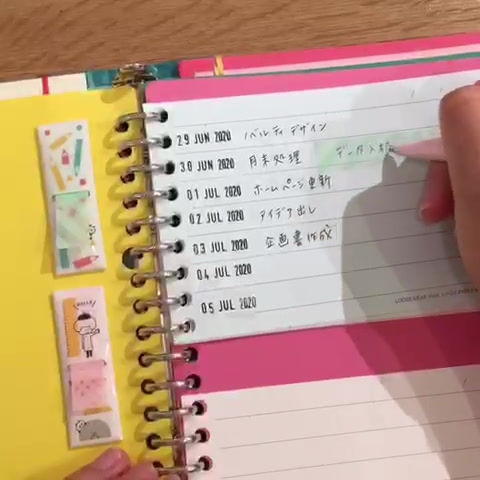 29 JUN 2020 ノベルティデザイン
30 JUN 2020 月末処理 データ入稿
01 JUL 2020 ホームページ更新
02 JUL 2020 アイデア出し
03 JUL 2020 企画書作成
04 JUL 2020
05 JUL 2020